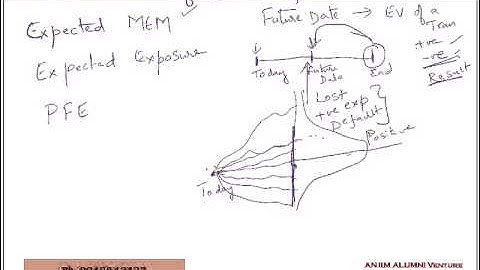 Expected MEM
Expected Exposure
PFE
Future Date → EV of a
Tran
+ve
-ve
Result
Today
Future
Date
End
Lost
+ve exp
Default
Positive
Today
AN IIM ALUMNI VENTURE